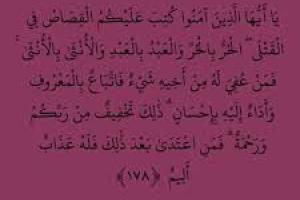 يَا أَيُّهَا الَّذِينَ آمَنُوا كُتِبَ عَلَيْكُمُ الْقِصَاصُ فِي
الْقَتْلَى ۖ الْحُرُّ بِالْحُرِّ وَالْعَبْدُ بِالْعَبْدِ وَالْأُنْثَىٰ بِالْأُنْثَىٰ ۚ
فَمَنْ عُفِيَ لَهُ مِنْ أَخِيهِ شَيْءٌ فَاتِّبَاعٌ بِالْمَعْرُوفِ
وَأَدَاءٌ إِلَيْهِ بِإِحْسَانٍ ۗ ذَٰلِكَ تَخْفِيفٌ مِنْ رَبِّكُمْ
وَرَحْمَةٌ ۗ فَمَنِ اعْتَدَىٰ بَعْدَ ذَٰلِكَ فَلَهُ عَذَابٌ
أَلِيمٌ ﴿١٧٨﴾